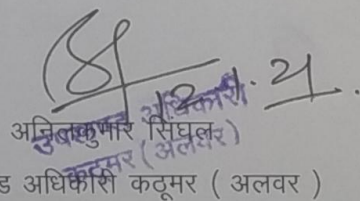 12.1.21.
अनिलकुमार सिंघल
उपखण्ड अधिकारी
कठूमर (अलवर)
ड अधिकारी कठूमर ( अलवर )